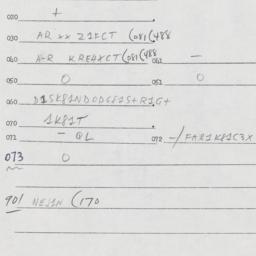 020 +
030 AR xx Z1KCT (081(488
060 A-R KRE4XCT (081(488 061 -
050 0 051 0
060 D1SK81NDODG81S+R1G+
070 1K81T
071 - QL 072 -/FAR1K81C3X
073 0
901 NEJ1N (170